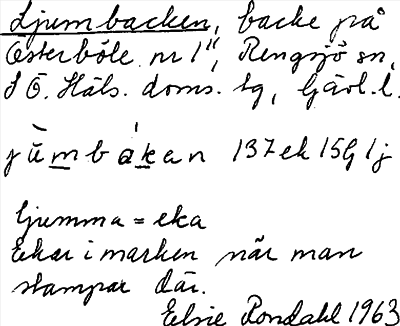 Ljumbacken, backe på
Österböle nr 1", Rengsjö sn,
S Ö. Häls. doms. tg, Gävl. l.
jùmbákan 137 ek 15G 1j
ljumma = eka
Ekar i marken när man
stampar där.
Elsie Rondahl 1963